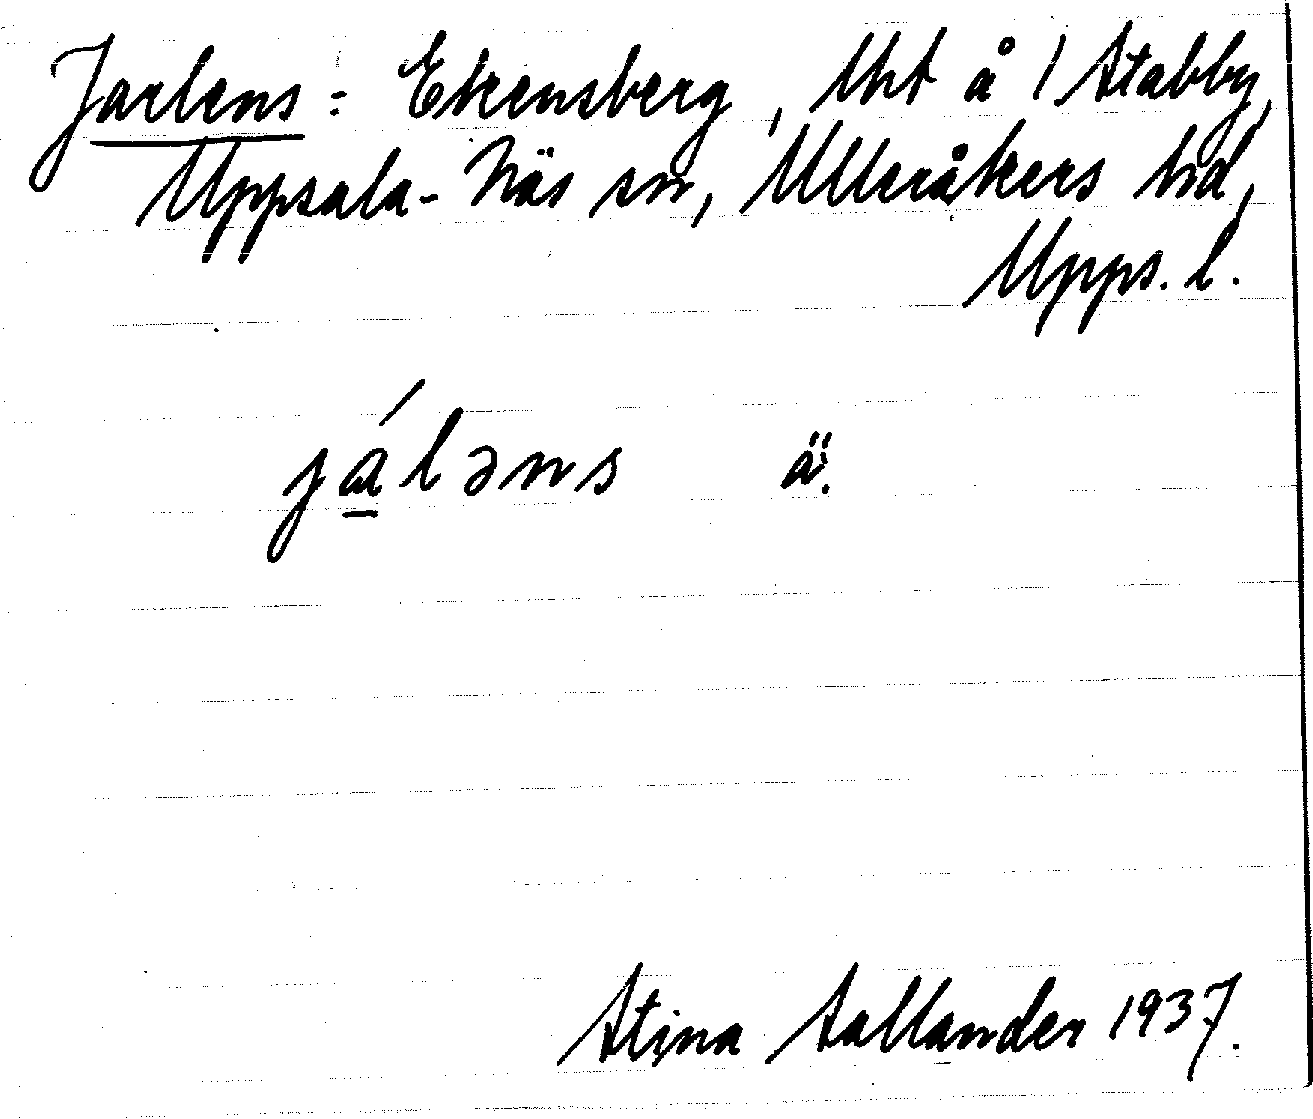 Jarlens = Ekensberg, lht å 1 Stabby,
Uppsala-Näs sn, Ulleråkers hd,
Upps. l.
já̱ləns ä.
Stina Sallander 1937.